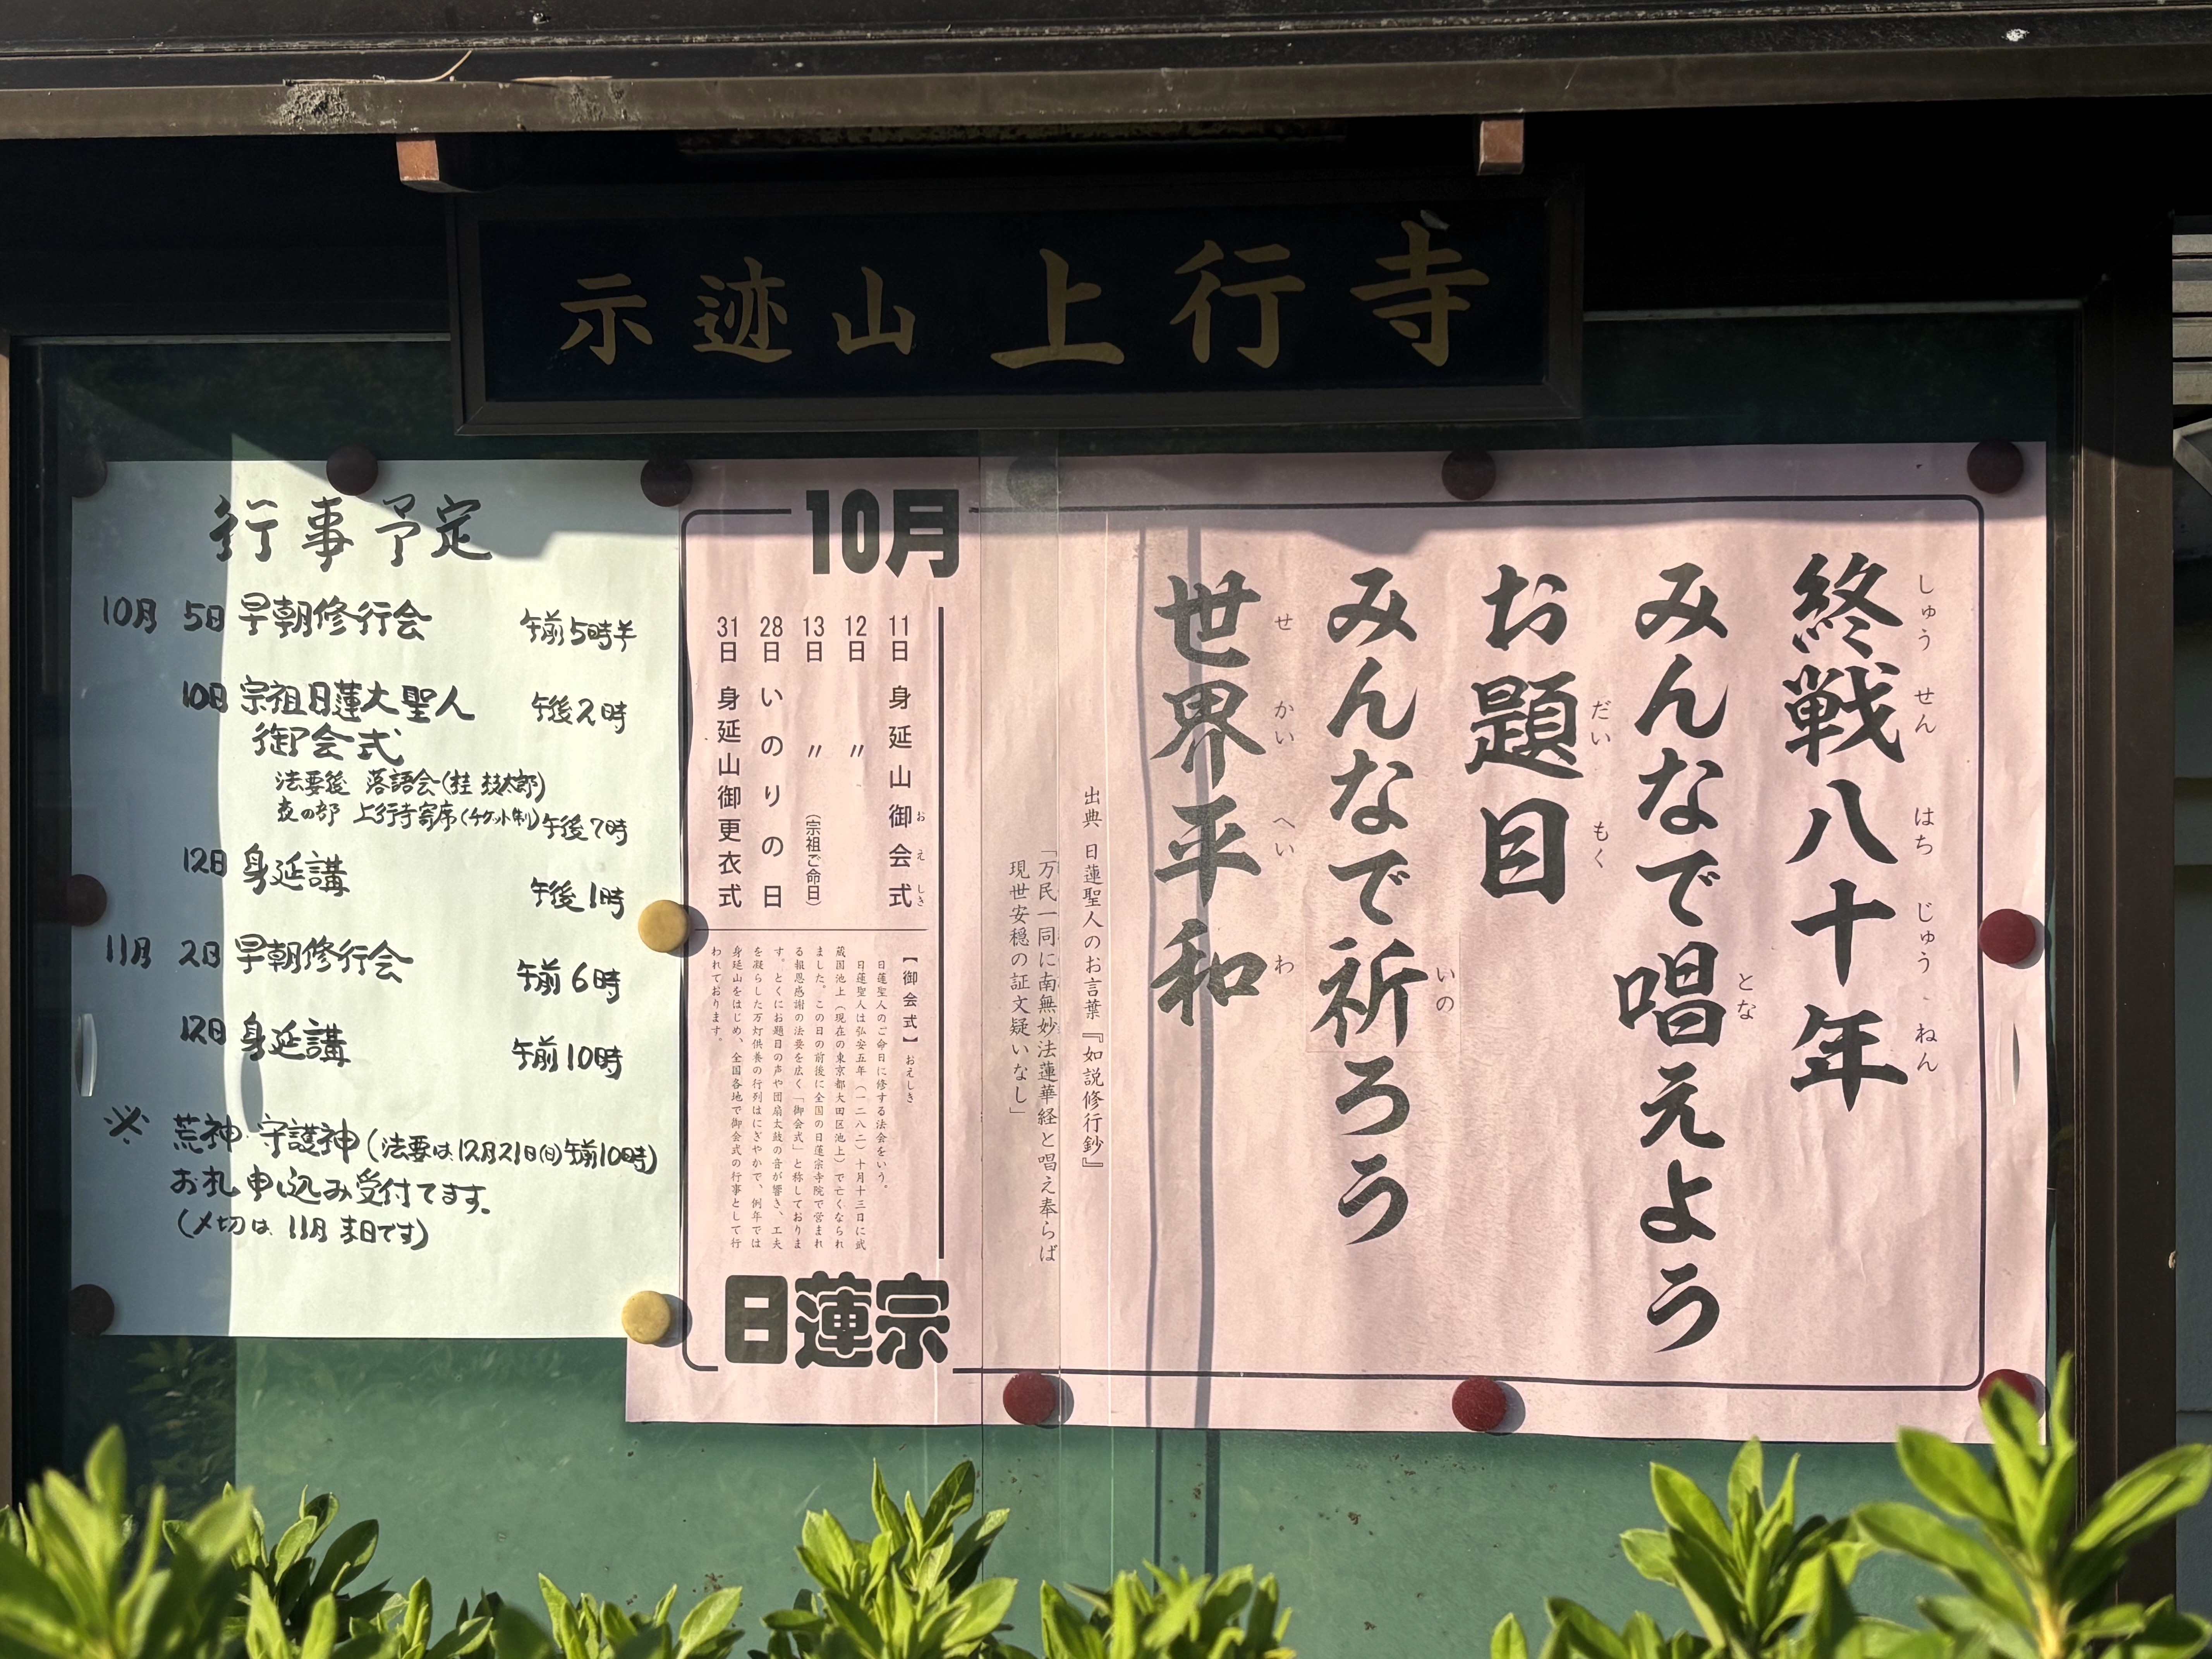 示迹山 上行寺
行事予定
10月 5日 早朝修行会 午前5時半
10日 宗祖日蓮大聖人 午後2時
御会式
法要後 落語会(桂 枝太郎)
夜の部 上行寺寄席(チケット制) 午後7時
12日 身延講 午後1時
11月 2日 早朝修行会 午前6時
12日 身延講 午前10時
※ 荒神 守護神(法要は12月21日(日)午前10時)
お札申し込み受付てます。
(〆切は 11月末日です)
終戦八十年
しゅうせんはちじゅうねん
みんなで唱えよう
とな
お題目
だいもく
みんなで祈ろう
いの
世界平和
せかいへいわ
出典 日蓮聖人のお言葉『如説修行鈔』
「万民一同に南無妙法蓮華経と唱え奉らば
現世安穏の証文疑いなし」
10月
11日 身延山御会式
おえしき
12日 〃
13日 〃 (宗祖ご命日)
28日 いのりの日
31日 身延山御更衣式
【御会式】おえしき
日蓮聖人のご命日に修する法会をいう。
日蓮聖人は弘安五年(一二八二)十月十三日に武
蔵国池上(現在の東京都大田区池上)で亡くなられ
ました。この日の前後に全国の日蓮宗寺院で営まれ
る報恩感謝の法要を広く「御会式」と称しておりま
す。とくにお題目の声や団扇太鼓の音が響き、工夫
を凝らした万灯供養の行列はにぎやかで、例年では
身延山をはじめ、全国各地で御会式の行事として行
われております。
日蓮宗